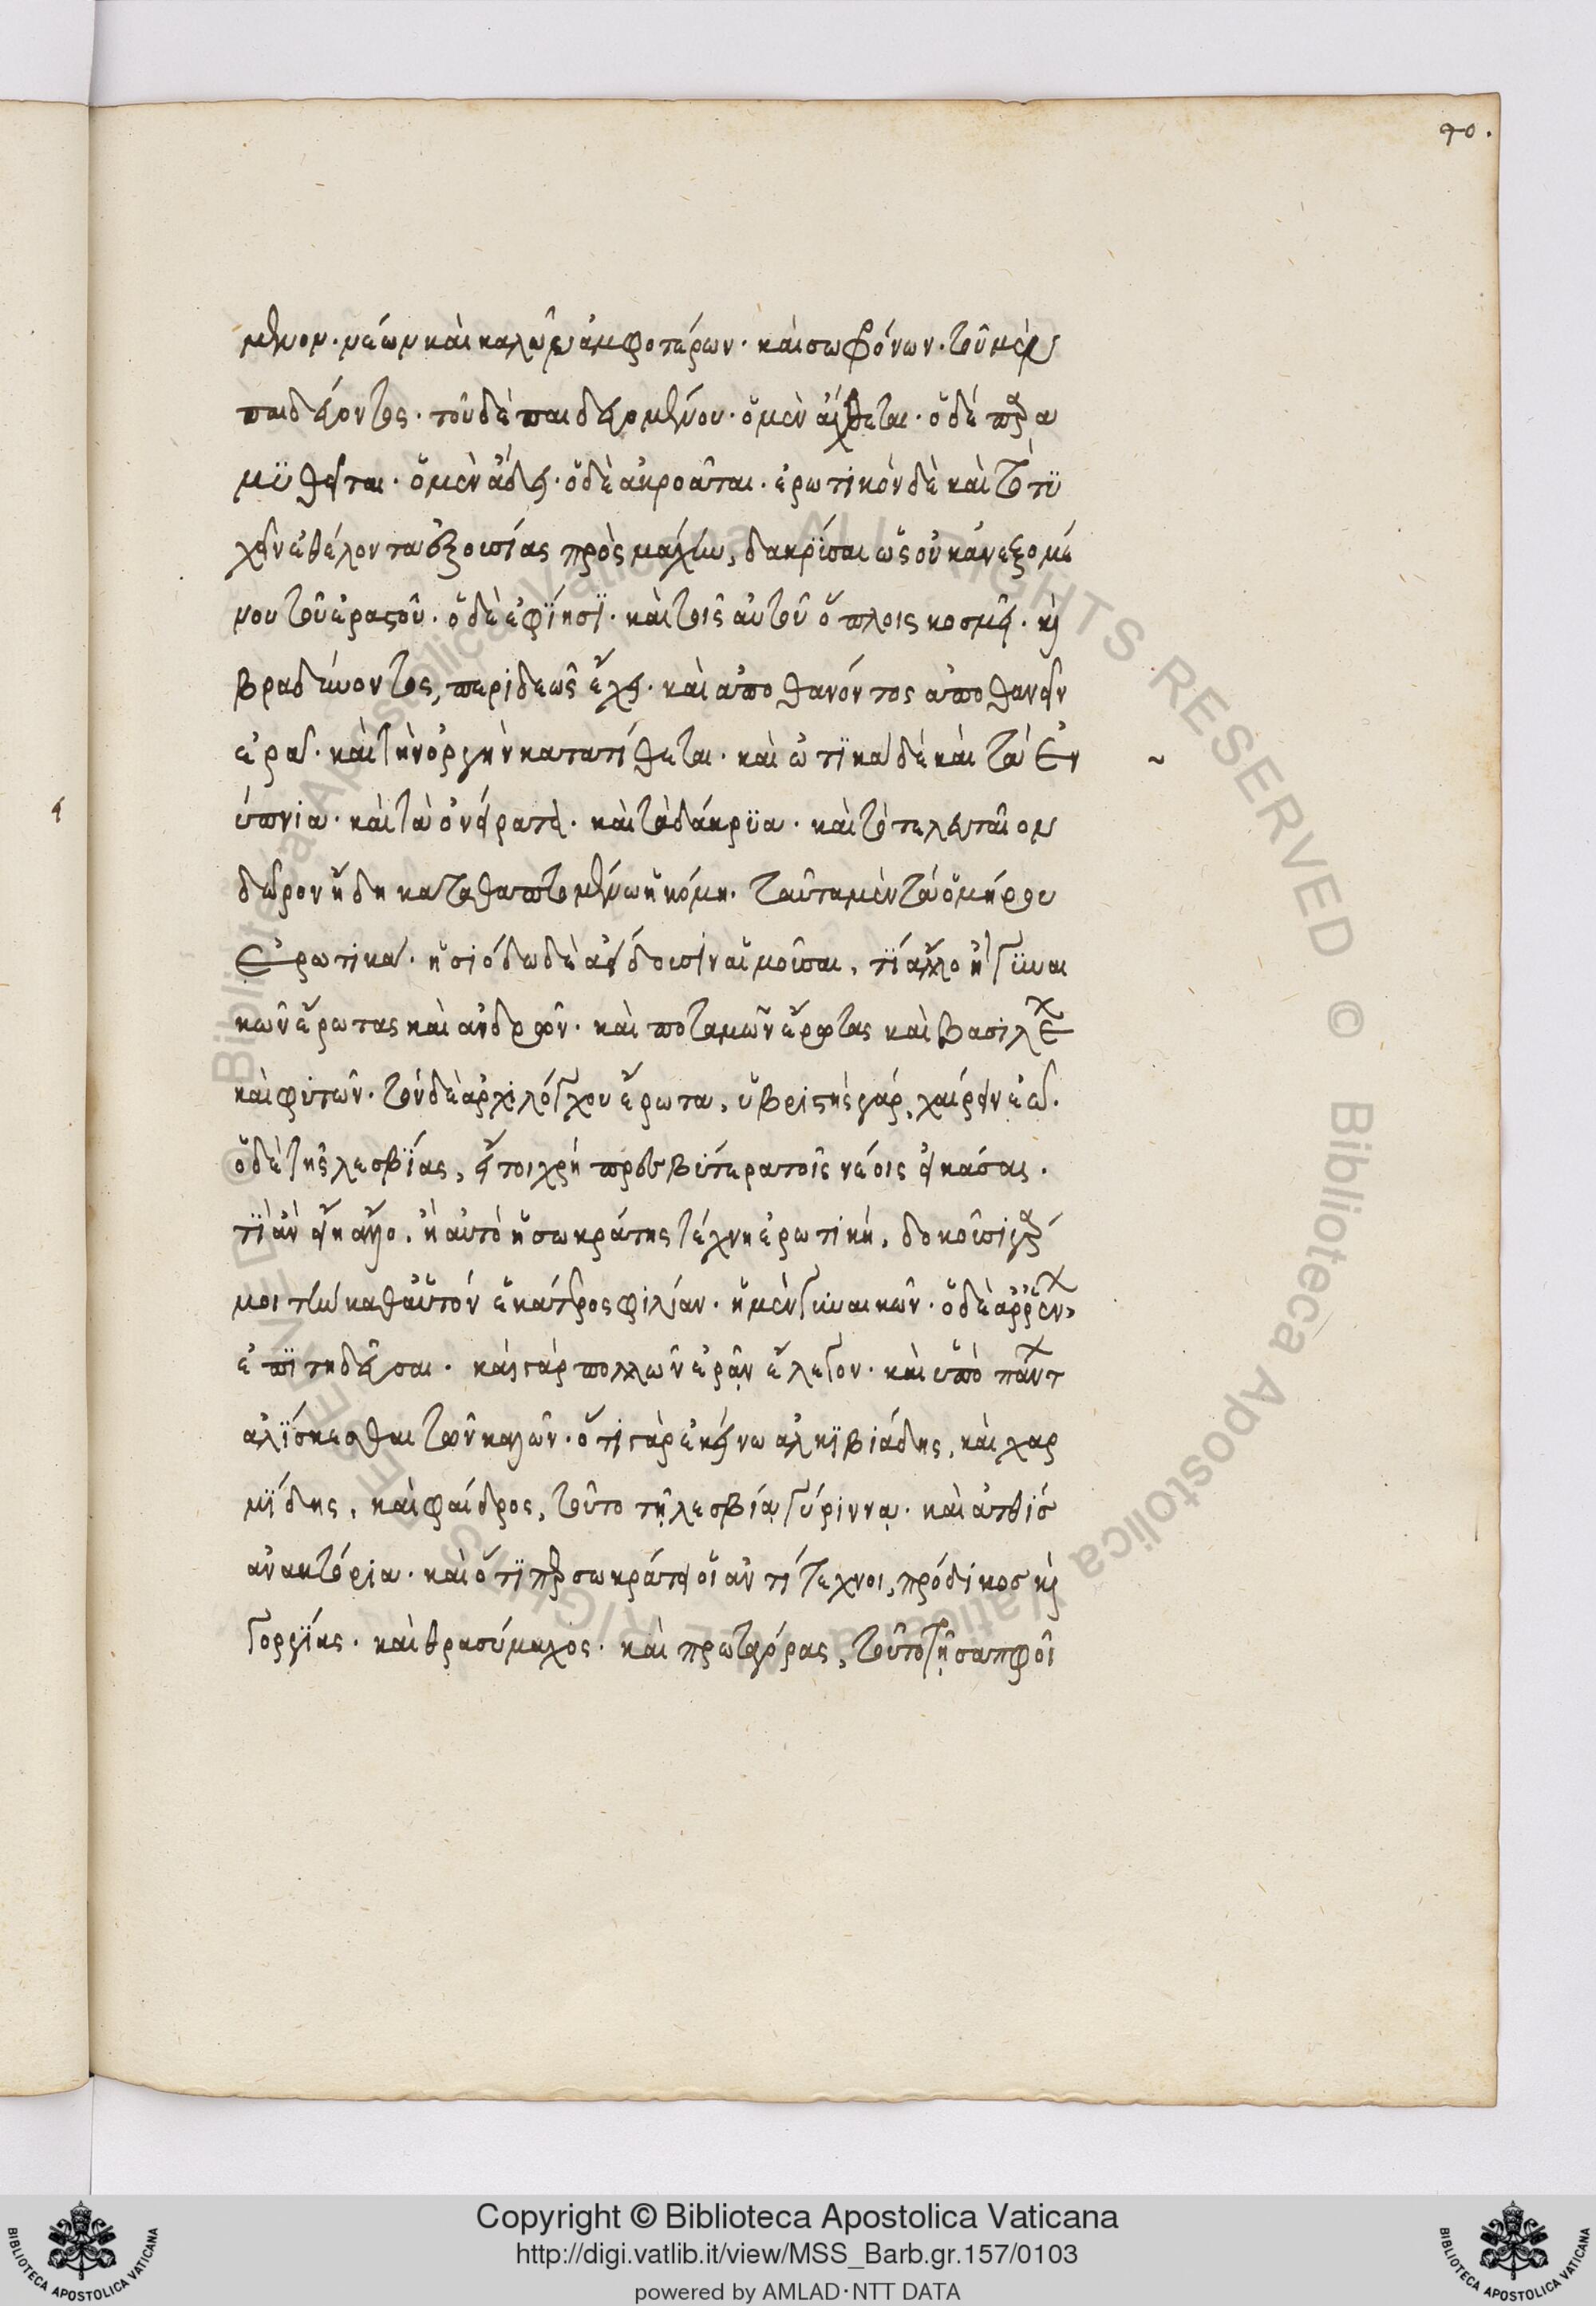 90.
μενον. νέων καὶ καλῶν ἀμφοτέρων. καὶ σωφρόνων. τοῦ μὲν
παιδεύοντος. τοῦ δὲ παιδευομένου. ὁ μὲν ἄχθεται. ὁ δὲ παρα
μυθεῖται. ὁ μὲν ἄδει. ὁ δὲ ἀκροᾶται. ἐρωτικὸν δὲ καὶ τὸ τυ
χεῖν ἐθέλοντα ἐξουσίας πρὸς μάχην, δακρῦσαι ὡς οὐκ ἀνεξομέ
νου τοῦ ἐραστοῦ. ὁ δὲ ἐφίησι. καὶ τοῖς αὐτοῦ ὅπλοις κοσμεῖ. κὶ
βραδύνοντος, περιδεῶς ἔχει. καὶ ἀποθανόντος ἀποθανεῖν
ἐρᾷ. καὶ τὴν ὀργὴν κατατίθεται. καὶ ἐωτικὰ δὲ καὶ τὰ ἐν ~
ύπνια. καὶ τὰ ὀνείρατα. καὶ τὰ δάκρυα. καὶ τὸ τελευταῖον
δῶρον ἤδη καταθαπτομένω ἡ κόμη. ταῦτα μὲν τὰ ὁμήρου
ἐρωτικά. ἡσιόδω δὲ ἀείδουσιν αἱ μοῦσαι, τί ἄλλο ἢ γυναι
κῶν ἔρωτας καὶ ἀνδρῶν. καὶ ποταμῶν ἔρωτας καὶ βασιλέων
καὶ φυτῶν. τὸν δὲ ἀρχιλόχου ἔρωτα, ὑβριστὴς γάρ, χαίρειν ἐῶ.
ὁ δὲ τῆς λεσβίας, εἴτοι χρὴ πρεσβύτερα τοῖς νέοις εἰκάσαι.
τί ἂν εἴη ἄλλο, ἢ αὐτὸ ἡ σωκράτης τέχνη ἐρωτική, δοκοῦσι γάρ
μοι τὴν καθ' αὑτὸν ἑκάτερος φιλίαν. ἡ μὲν γυναικῶν. ὁ δὲ ἀρρένων
ἐπιτηδεῦσαι. καὶ γὰρ πολλῶν ἐρᾷν ἔλεγον. καὶ ὑπὸ πάντων
ἁλίσκεσθαι τῶν καλῶν. ὅ τι γὰρ ἐκείνω ἀλκιβιάδης, καὶ χαρ
μίδης, καὶ φαίδρος, τοῦτο τῇ λεσβίᾳ γύριννᾳ. καὶ ἀτθὶς
ἀνακτόρια. καὶ ὅ τι περ σωκράτει οἱ ἀντίτεχνοι, πρόδικος κὶ
γοργίας. καὶ θρασύμαχος. καὶ πρωταγόρας, τοῦτο τῇ σαπφοῖ
Copyright © Biblioteca Apostolica Vaticana
http://digi.vatlib.it/view/MSS_Barb.gr.157/0103
powered by AMLAD·NTT DATA